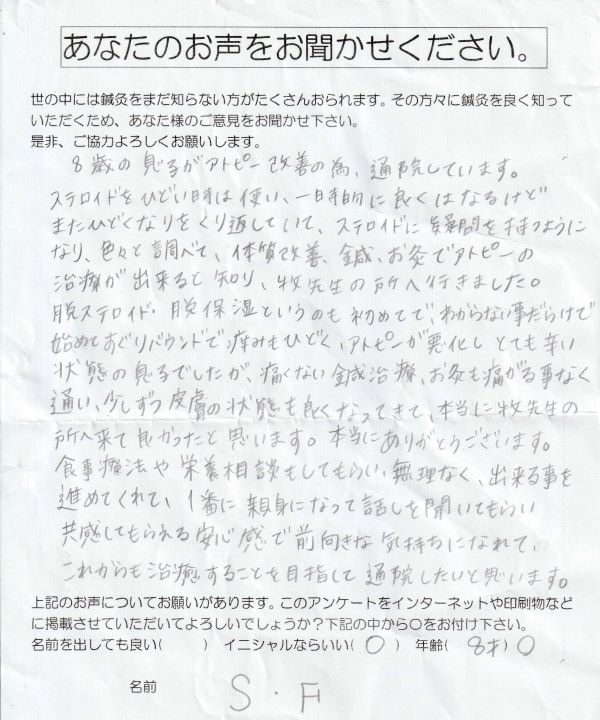 あなたのお声をお聞かせください。
世の中には鍼灸をまだ知らない方がたくさんおられます。その方々に鍼灸を良く知って
いただくため、あなた様のご意見をお聞かせ下さい。
是非、ご協力よろしくお願いします。
8歳の息子がアトピー改善の為、通院しています。
ステロイドをひどい時は使い、一時的に良くはなるけど
またひどくなりをくり返していて、ステロイドに疑問を持つように
なり、色々と調べて、体質改善、鍼、お灸でアトピーの
治療が出来ると知り、牧先生の所へ行きました。
脱ステロイド・脱保湿というのも初めてで、わからない事だらけで
始めてすぐリバウンドで痒みもひどく、アトピーが悪化しとても辛い
状態の息子でしたが、痛くない鍼治療、お灸も痛がる事なく
通い、少しずつ皮膚の状態も良くなってきて、本当に牧先生の
所へ来て良かったと思います。本当にありがとうございます。
食事療法や栄養相談もしてもらい、無理なく、出来る事を
進めてくれて、1番に親身になって話しを聞いてもらい
共感してもらえる安心感で前向きな気持ちになれて、
これからも治癒することを目指して通院したいと思います。
上記のお声についてお願いがあります。このアンケートをインターネットや印刷物など
に掲載させていただいてよろしいでしょうか?下記の中から○をお付け下さい。
名前を出しても良い( ) イニシャルならいい(○) 年齢(8才)○
名前 S・F